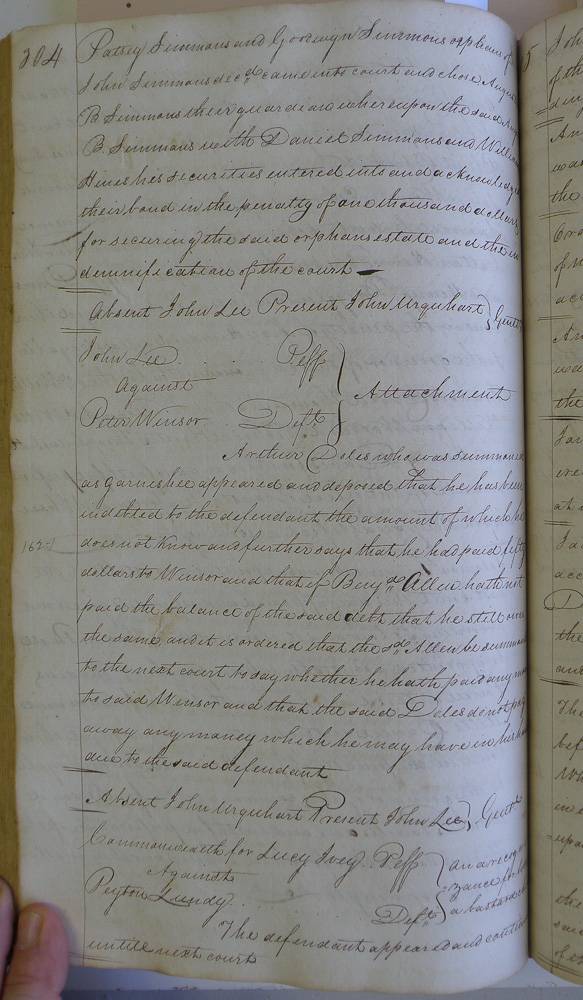 304
Patsey Simmons and Goodwyn Simmons orphans of
John Simmons decd. came into court and chose
B Simmons their guardian whereupon the said
B. Simmons with Daniel Simmons and William
Hines his securities entered into and acknowledged
their bond in the penalty of one thousand dollars
for securing the said orphans estate and the in
demnification of the court
Absent John Lee Present John Urquhart } Gent.
John Lee Peff
Against } Attachment
Peter Winsor Deft.
Arthur Doles who was summoned
as garnishee appeared and deposed that he has been
indebted to the defendant the amount of which he
does not Know and further says that he had paid fifty
dollars to Winsor and that if Benj. Allen hath not
paid the balance of the said debt that he still owes
the same and it is ordered that the sd. Allen be summon
to the next court to say whether he hath paid any mo
to said Winsor and that the said Doles do not pay
away any money which he may have in his han
due to the said defendant
Absent John Urquhart Present John Lee } Gent.
Commonwealth for Lucy Ivey Peff } on a recog
Against } zance for
Peyton Lundy Deft. } a bastard
The defendant appeared and
untill next court
5